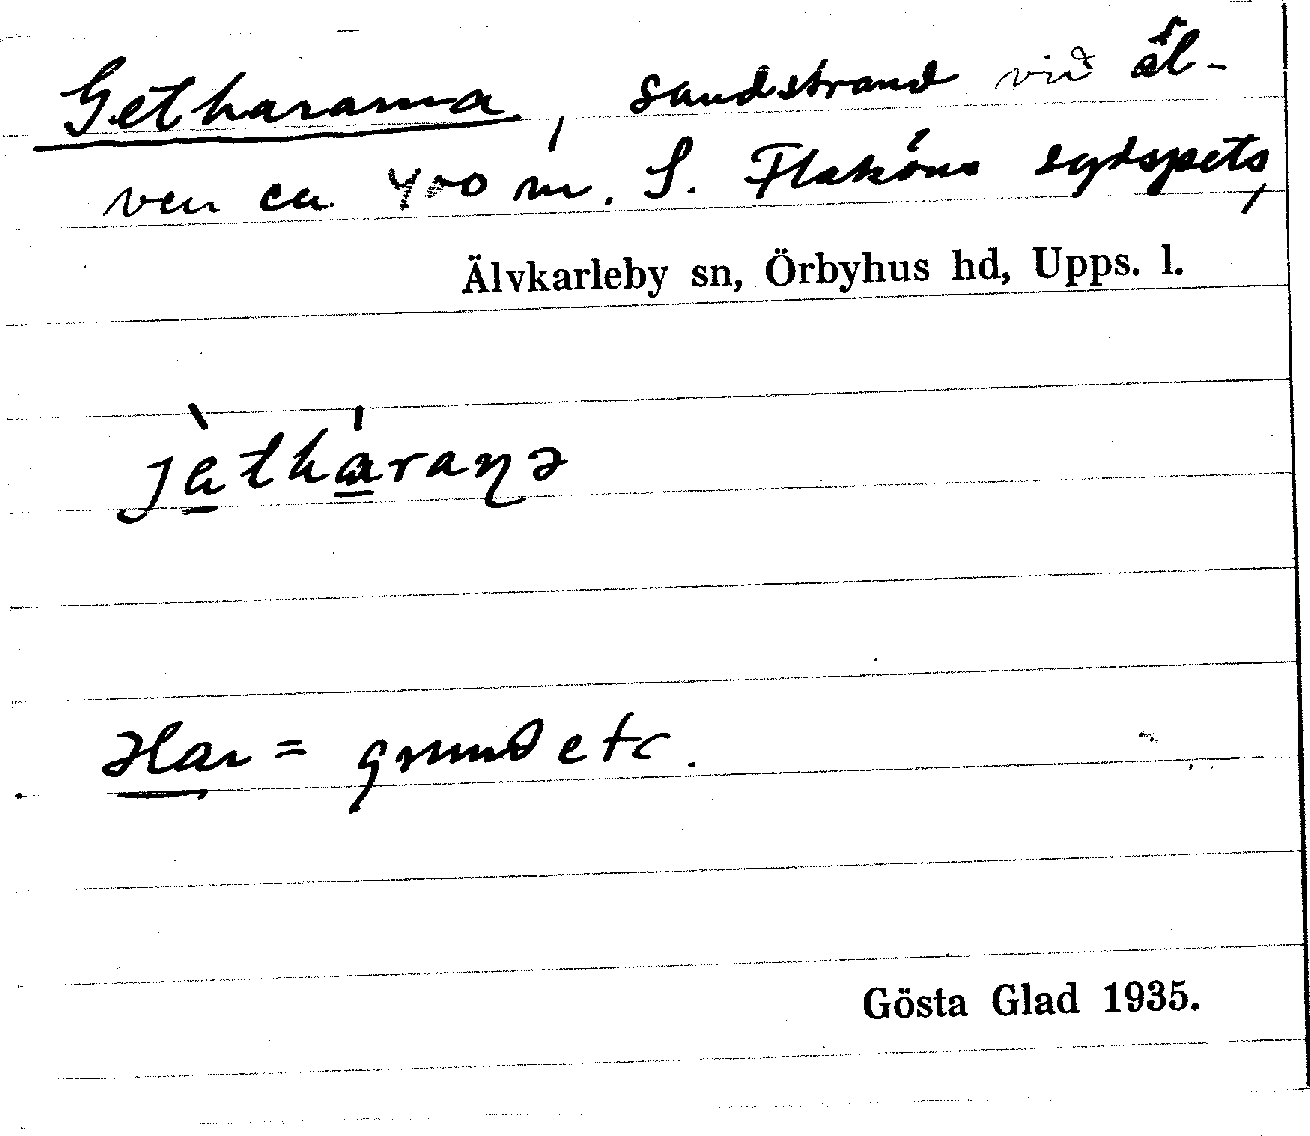 Gethararna, sandstrand vid äl-
ven ca 400 m. S. Flaköns sydspets,
Älvkarleby sn, Örbyhus hd, Upps. l.
jàthàraɳə
Har = grund etc.
Gösta Glad 1935.